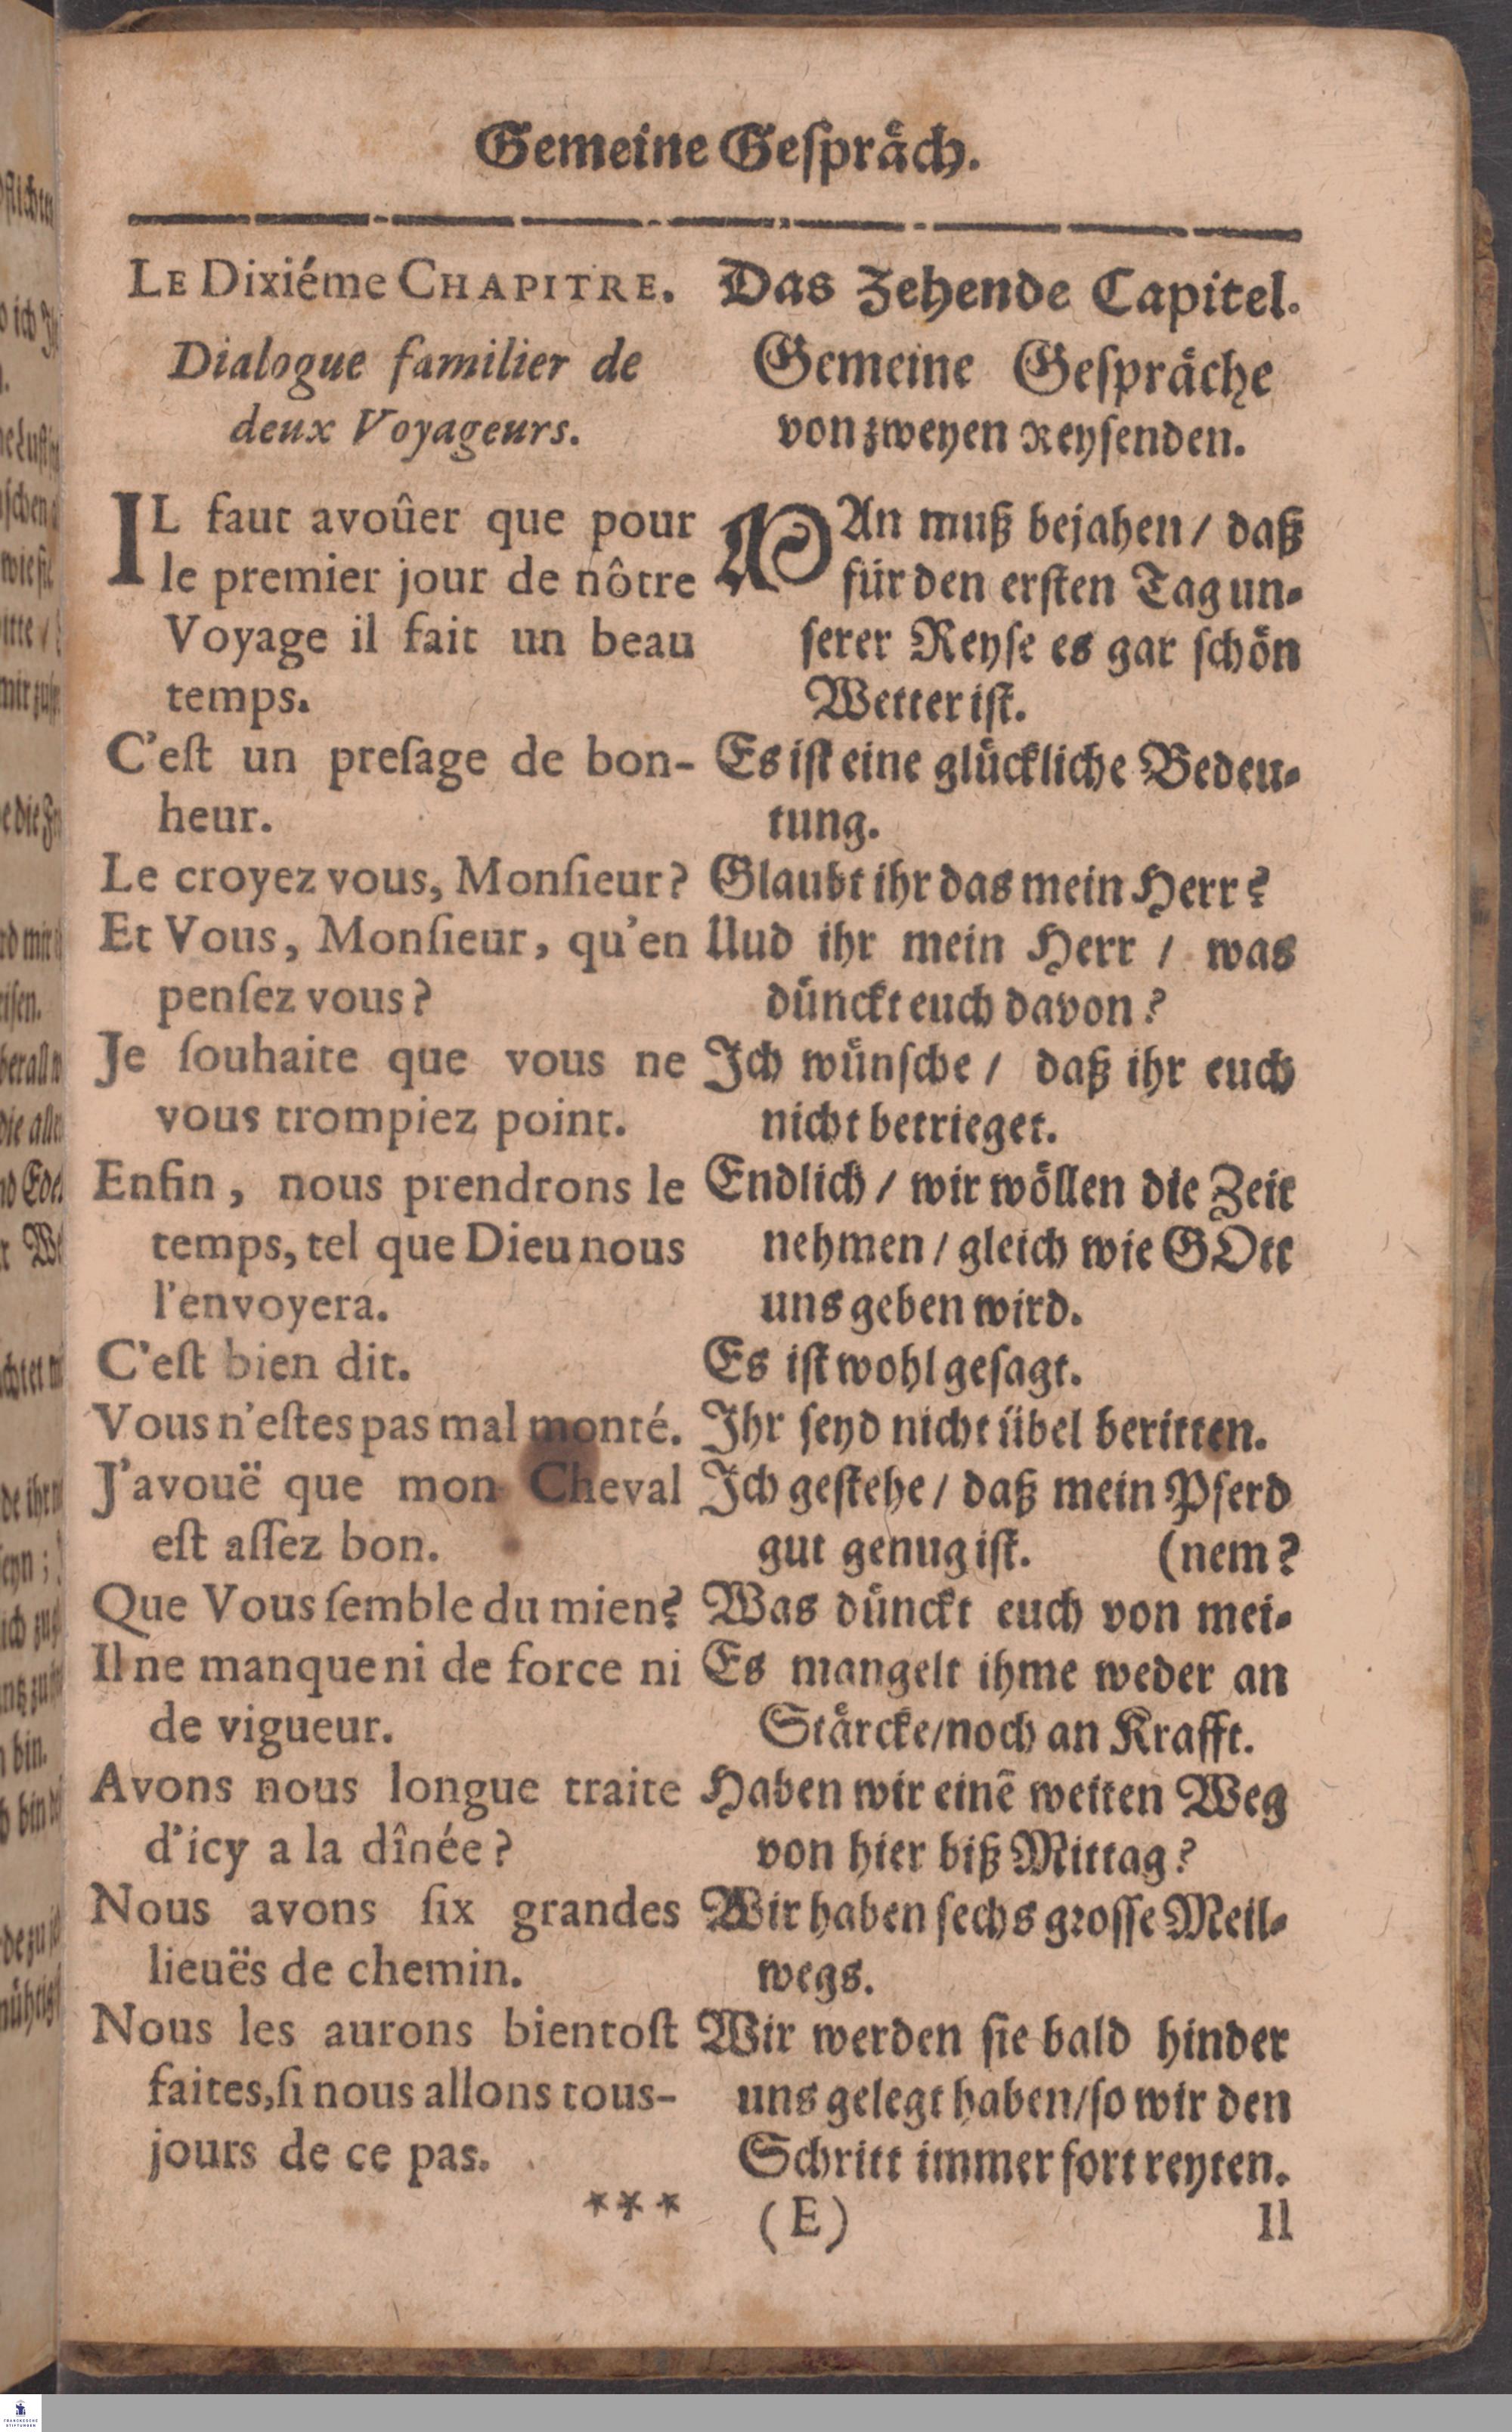 Gemeine Gespräch.
LE Dixiéme CHAPITRE.
Dialogue familier de
deux Voyageurs.
IL faut avoûer que pour
le premier jour de nôtre
Voyage il fait un beau
temps.
C'eſt un preſage de bon-
heur.
Le croyez vous, Monſieur?
Et Vous, Monſieur, qu'en
penſez vous?
Je ſouhaite que vous ne
vous trompiez point.
Enfin, nous prendrons le
temps, tel que Dieu nous
l'envoyera.
C'eſt bien dit.
Vous n'eſtes pas mal monté.
J'avouë que mon Cheval
eſt aſſez bon.
Que Vous ſemble du mien?
Il ne manque ni de force ni
de vigueur.
Avons nous longue traite
d'icy a la dînée?
Nous avons ſix grandes
lieuës de chemin.
Nous les aurons bientoſt
faites, ſi nous allons tous-
jours de ce pas.
Das Zehende Capitel.
Gemeine Geſpräche
von zweyen Reyſenden.
MAn muß bejahen / daß
für den erſten Tag un-
ſerer Reyſe es gar ſchön
Wetter iſt.
Es iſt eine glückliche Bedeu-
tung.
Glaubt ihr das mein Herr?
Uud ihr mein Herr / was
dünckt euch davon?
Ich wünſche / daß ihr euch
nicht betrieget.
Endlich / wir wöllen die Zeit
nehmen / gleich wie GOtt
uns geben wird.
Es iſt wohl geſagt.
Ihr ſeyd nicht übel beritten.
Ich geſtehe / daß mein Pferd
gut genug iſt. (nem?
Was dünckt euch von mei-
Es mangelt ihme weder an
Stärcke/noch an Krafft.
Haben wir einẽ weiten Weg
von hier biß Mittag?
Wir haben ſechs groſſe Meil-
wegs.
Wir werden ſie bald hinder
uns gelegt haben/ſo wir den
Schritt immer fort reyten.
*** (E) Il